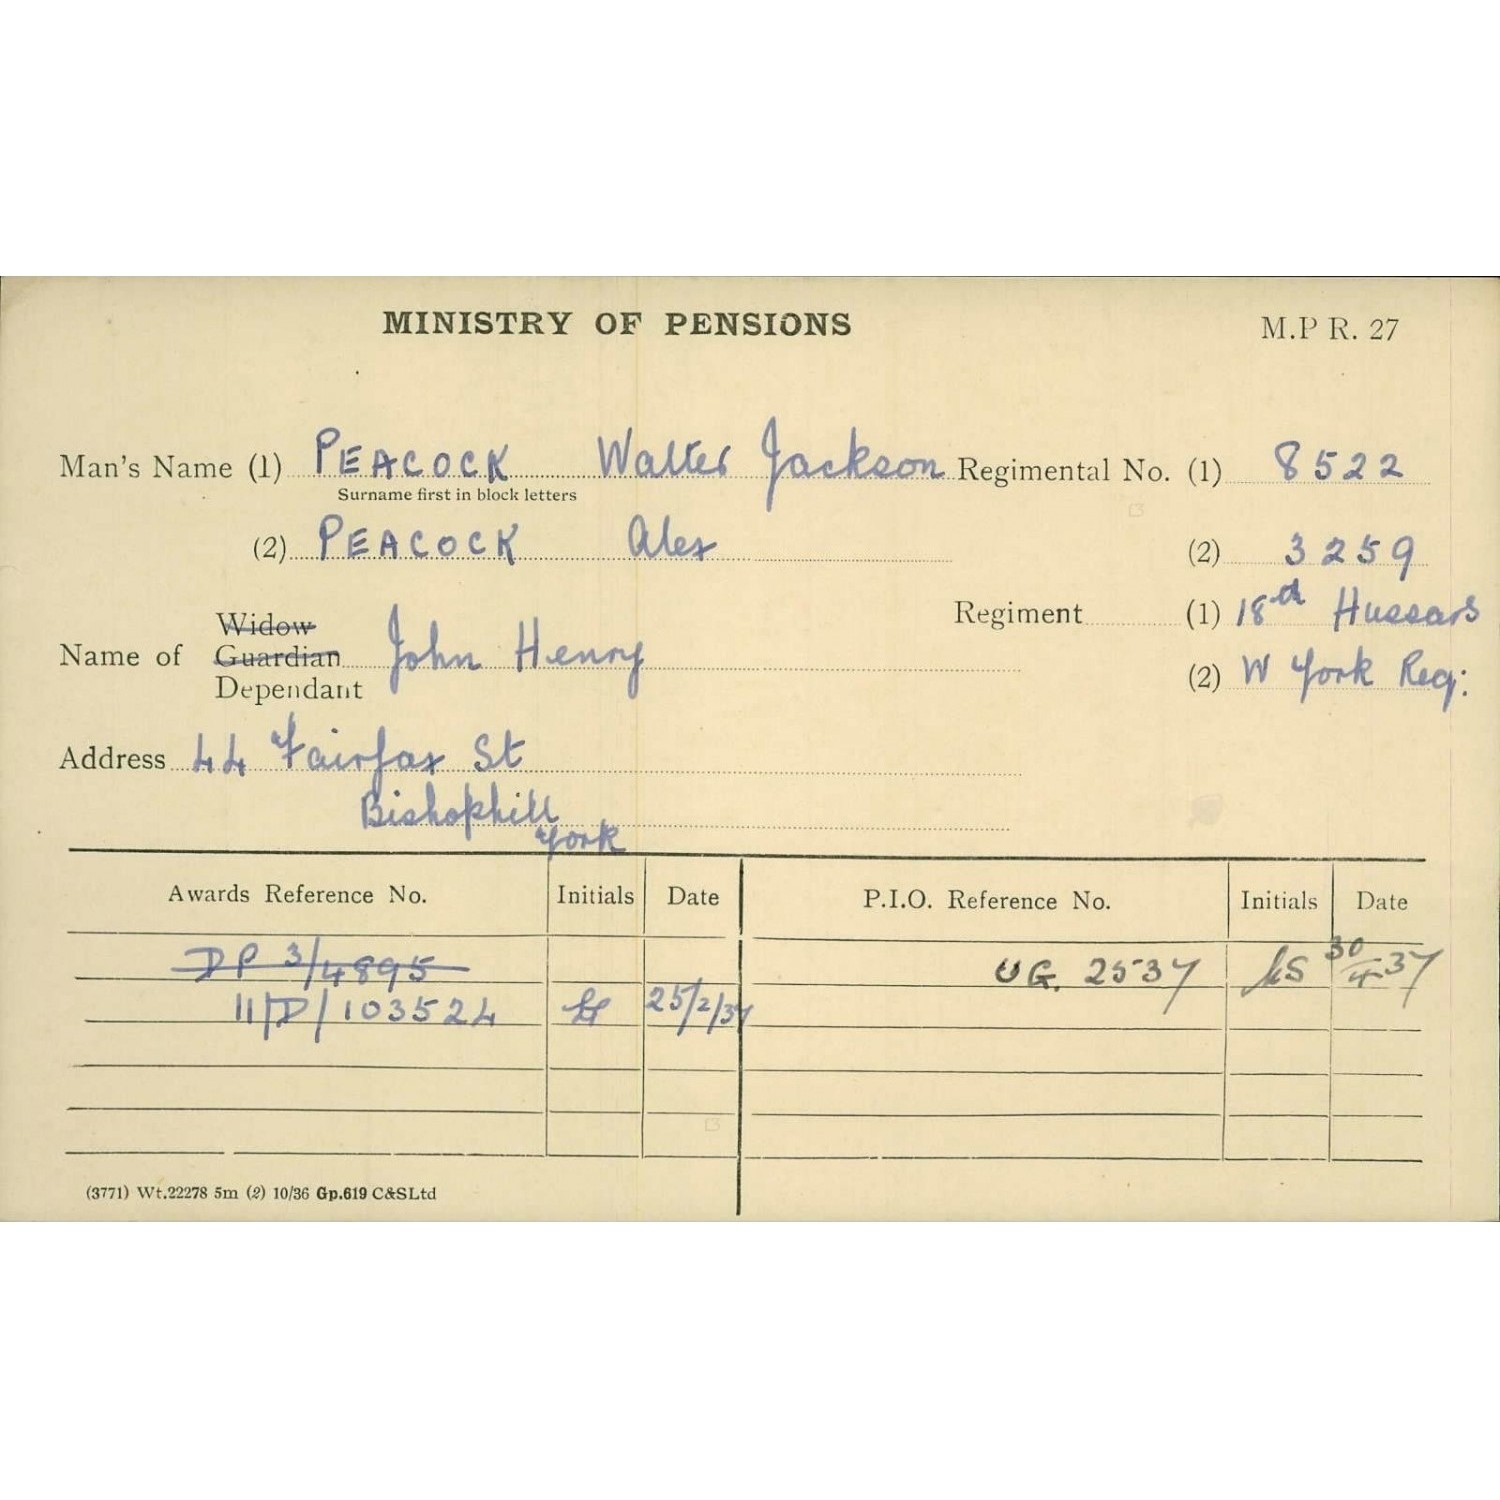 MINISTRY OF PENSIONS M.P R. 27
Man's Name (1) PEACOCK Walter Jackson Regimental No. (1) 8522
Surname first in block letters
(2) PEACOCK Alex (2) 3259
Regiment (1) 18th Hussars
Widow
Name of Guardian John Henry
Dependant
(2) W York Reg:
Address 44 Fairfax St
Bishophill
York
Awards Reference No. Initials Date P.I.O. Reference No. Initials Date
DP 3/4895 UG. 2537 30/4 37
11/D/103524 25/2/37
(3771) Wt.22278 5m (2) 10/36 Gp.619 C&SLtd